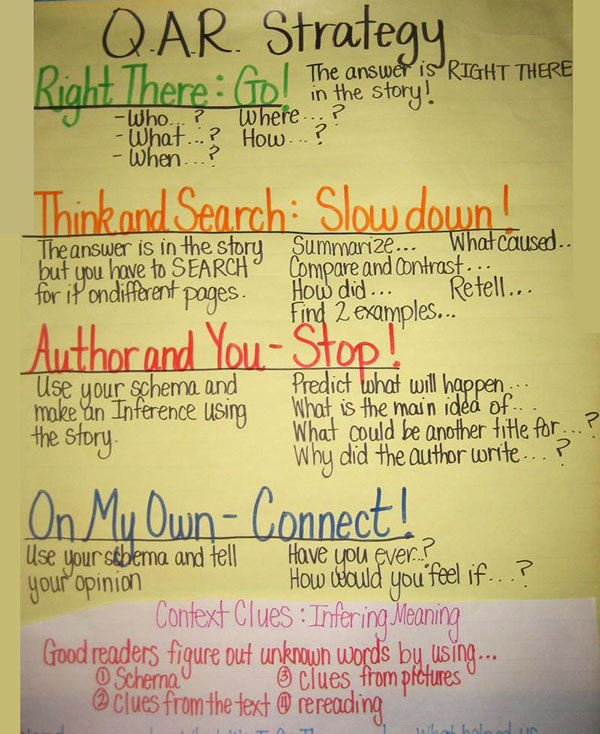 Q.A.R. Strategy
Right There: Go! The answer is RIGHT THERE
in the story!
- Who... ? Where... ?
- What... ? How... ?
- When... ?
Think and Search: Slow down!
The answer is in the story
but you have to SEARCH
for it on different pages.
Summarize... What caused..
Compare and Contrast...
How did... Retell...
Find 2 examples...
Author and You - Stop!
Use your schema and
make an Inference using
the story.
Predict what will happen...
What is the main idea of...
What could be another title for...?
Why did the author write...?
On My Own - Connect!
Use your schema and tell
your opinion
Have you ever..?
How would you feel if...?
Context Clues: Infering Meaning
Good readers figure out unknown words by using...
① Schema ③ clues from pictures
② Clues from the text ④ rereading
What helped us